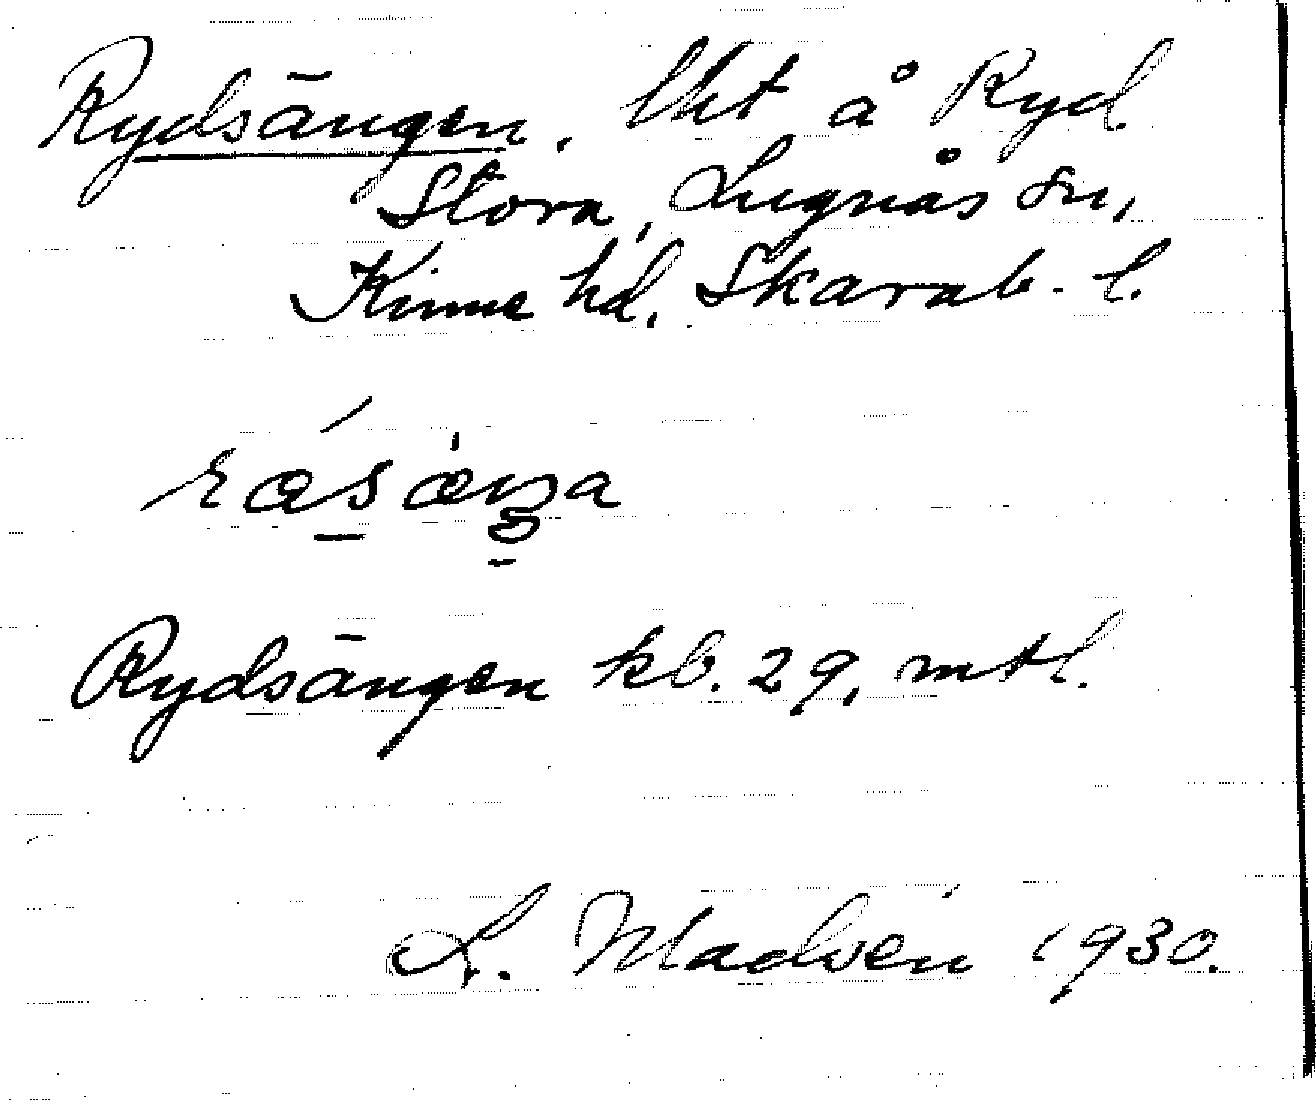 Rydsängen. lht å Ryd
Stora, Lugnås sn,
Kinne hd, Skarab. l.
Rydsängen kb. 29, mtl.
L. Madvén 1930.